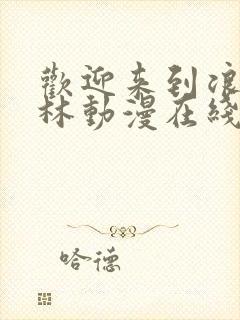 歡迎来到浪
林動漫在綫
哈德